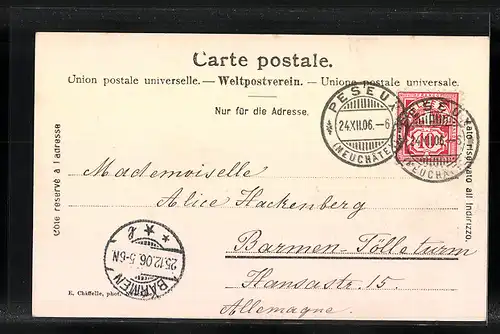 Carte postale.
Union postale universelle. — Weltpostverein. — Unione postale universale.
Nur für die Adresse.
côté réservé à l'adresse
lato riservato all' indirizzo.
PESEUX
24.XII.06.—6
(NEUCHÂTEL)
PESEUX
24. 06.—6
(NEUCHÂTEL)
10
Mademoiselle
Alice Hackenberg
Barmen-Tölleturm
Hansastr. 15.
Allemagne.
BARMEN
25.12.06.5-6N
* 2 *
E. Châffelle, phot.